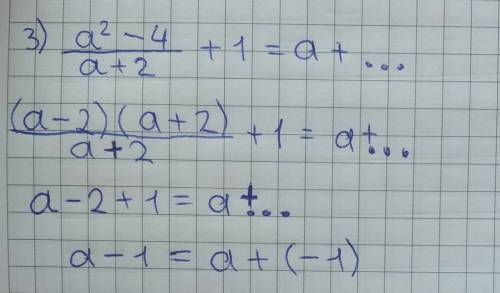 3) (a² - 4)/(a + 2) + 1 = a + ...
(a - 2)(a + 2)/(a + 2) + 1 = a + ...
a - 2 + 1 = a + ...
a - 1 = a + (-1)